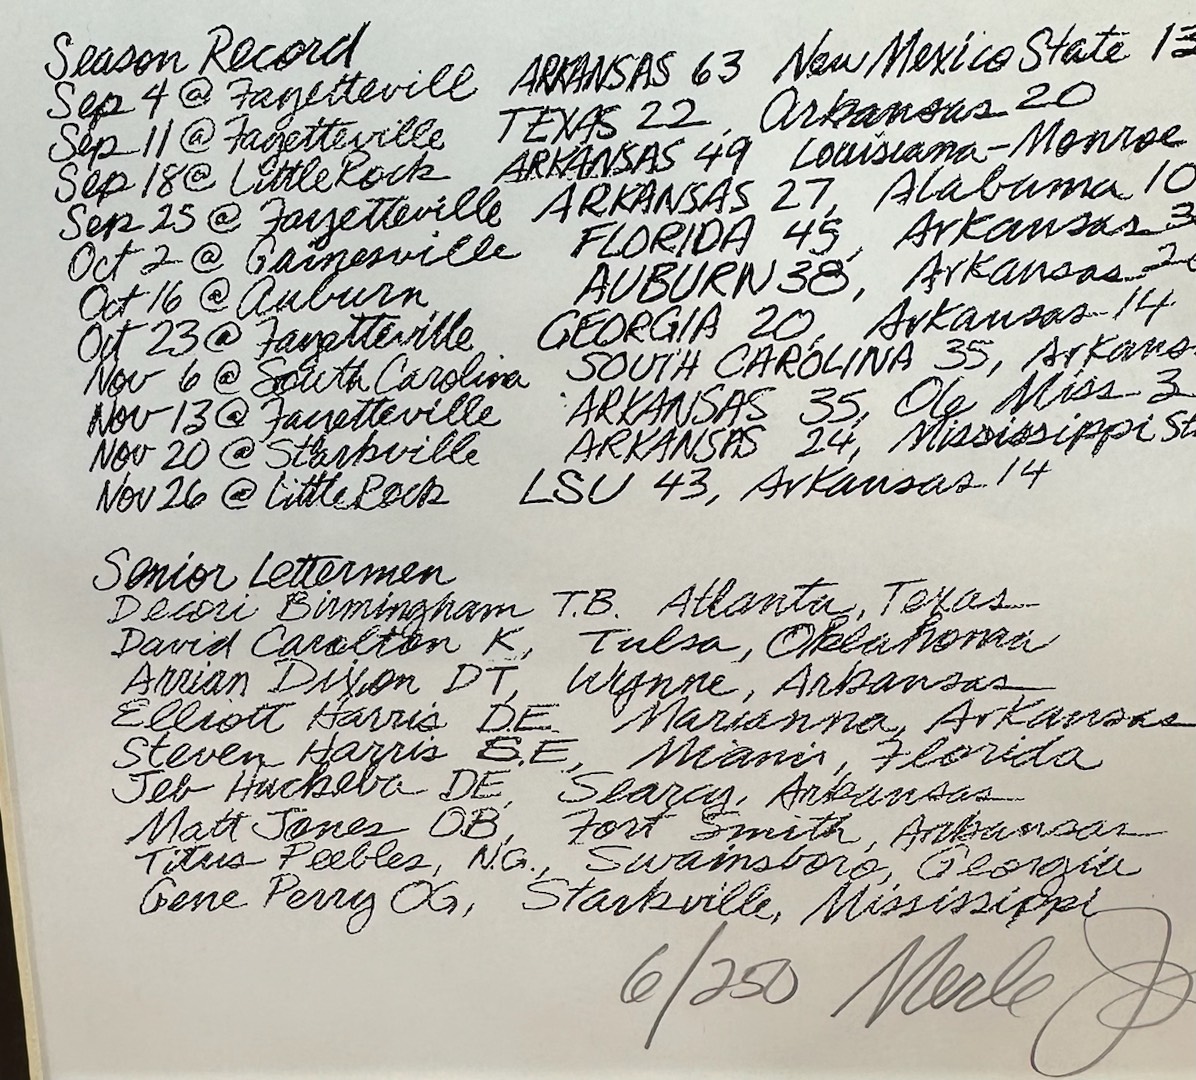 Season Record
Sep 4 @ Fayetteville ARKANSAS 63 New Mexico State 13
Sep 11 @ Fayetteville TEXAS 22, Arkansas 20
Sep 18 @ Little Rock ARKANSAS 49 Louisiana-Monroe
Sep 25 @ Fayetteville ARKANSAS 27, Alabama 10
Oct 2 @ Gainesville FLORIDA 45, Arkansas 3
Oct 16 @ Auburn AUBURN 38, Arkansas 2
Oct 23 @ Fayetteville GEORGIA 20, Arkansas 14
Nov 6 @ South Carolina SOUTH CAROLINA 35, Arkans
Nov 13 @ Fayetteville ARKANSAS 35, Ole Miss 3
Nov 20 @ Starkville ARKANSAS 24, Mississippi St
Nov 26 @ Little Rock LSU 43, Arkansas 14
Senior Lettermen
Decori Birmingham T.B. Atlanta, Texas
David Carolton K, Tulsa, Oklahoma
Arrian Dixon DT, Wynne, Arkansas
Elliott Harris D.E. Marianna, Arkansas
Steven Harris S.E, Miami, Florida
Jeb Huckeba DE, Searcy, Arkansas
Matt Jones QB, Fort Smith, Arkansas
Titus Peebles, N.G., Swainsboro, Georgia
Gene Perry OG, Starkville, Mississippi
6/250 Merle